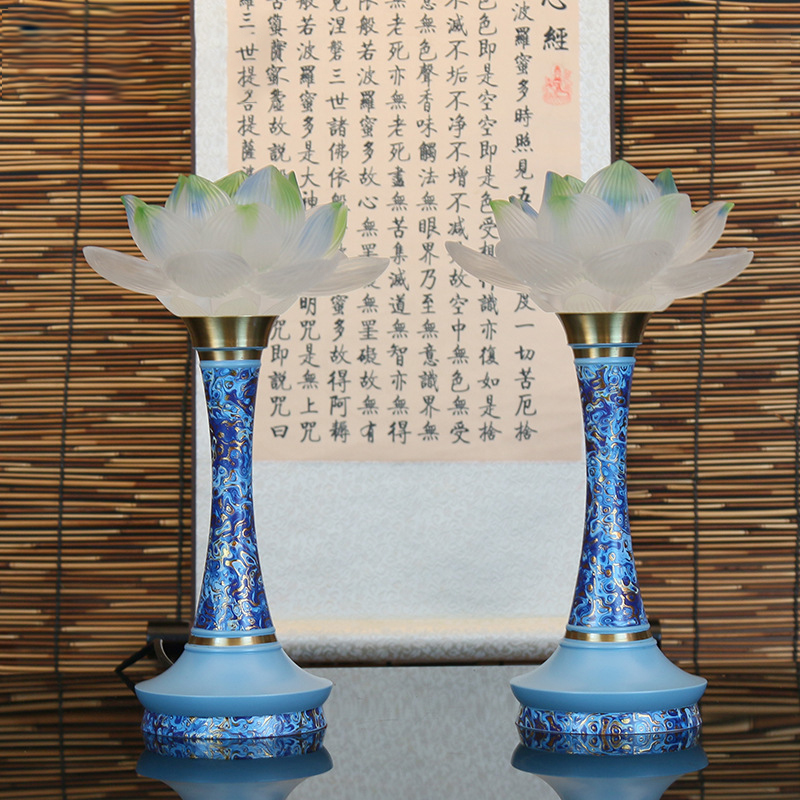 心經
波羅蜜多時照見五度一切苦厄捨
色即是空空即是色受想行識亦復如是捨
不滅不垢不净不增不减故空中無色無受
無色聲香味觸法無眼界乃至無意識界無
老死亦無老死盡無苦集滅道無智亦無得
依般若波羅蜜多故心無罣礙無罣礙故無有
涅槃三世諸佛依般蜜多故得阿耨
般若波羅蜜多是大神明咒是無上咒
苦真實不虛故說咒即說咒曰
羅三世提菩提薩